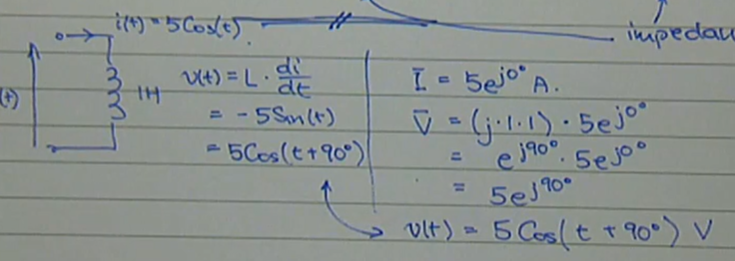 i(t) = 5Cos(t).
(t)
1H
v(t) = L · di/dt
= -5Sin(t)
= 5Cos(t+90°)
Ī = 5e^j0° A.
V̄ = (j·1·1) · 5e^j0°
= e^j90° · 5e^j0°
= 5e^j90°
v(t) = 5 Cos(t + 90°) V